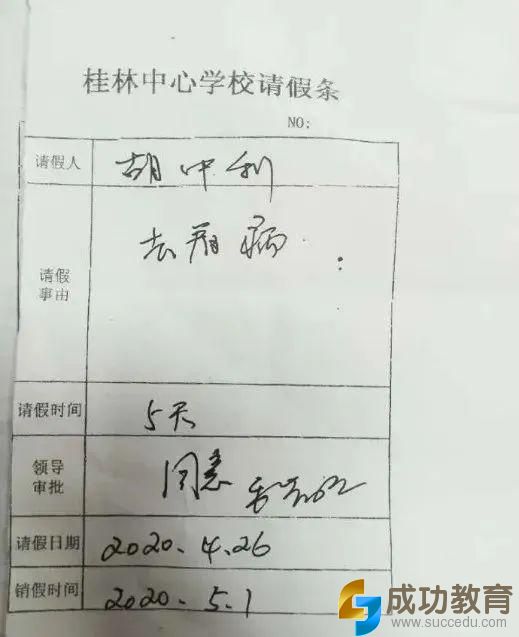 桂林中心学校请假条
NO:
请假人 胡中利
请假
事由
去看病
请假时间 5天
领导
审批
同意
请假日期 2020.4.26
销假时间 2020.5.1
成功教育
www.succedu.com